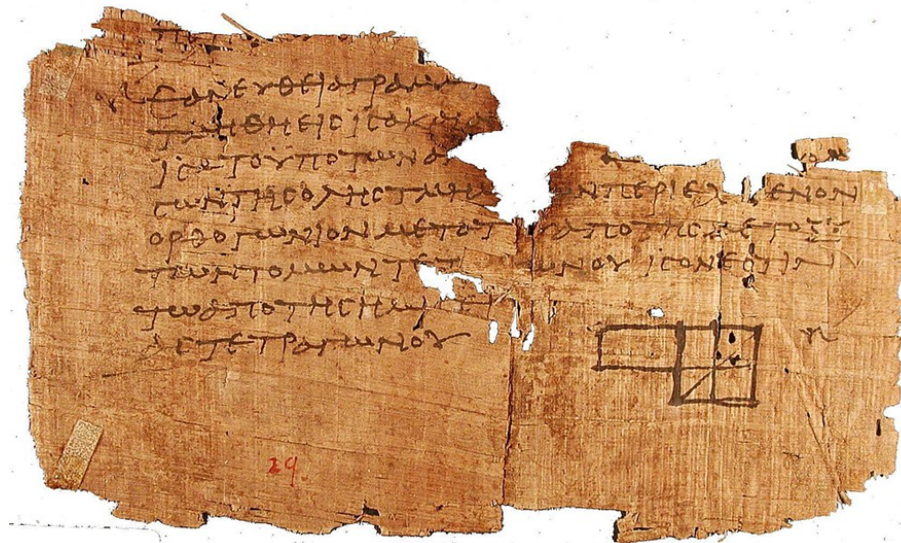 ΕΑΝΕΥΘΕΙΑΓΡΑΜΜ
ΤΜΗΘΗΕΙϹΙϹΑΚΑΙΑΝ
ΙϹΑΤΟΥΠΟΤΩΝΑΝ ΩΝ
ΤΩΝΤΗϹΟΛΗϹΤΜΗΜ ΩΝΠΕΡΙΕΧ ΜΕΝΟΝ
ΟΡΘΟΓΩΝΙΟΝΜΕΤΑΤΟΥΑΠΟΤΗϹΜΕΤΟΞΥ
ΤΩΝΤΟΜΩΝΤΕΤ ΓΩΝΟΥΙϹΟΝΕϹΤΙΝ
ΤΩΑΠΟΤΗϹΗΜΙϹΕΙ
ΑϹΤΕΤΡΑΓΩΝΟΥ
29